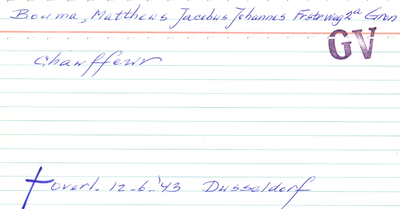 Bouma, Mattheus Jacobus Johannes Frstrweg 2a Gron
GV
Chauffeur
† overl. 12-6-'43 Dusseldorf